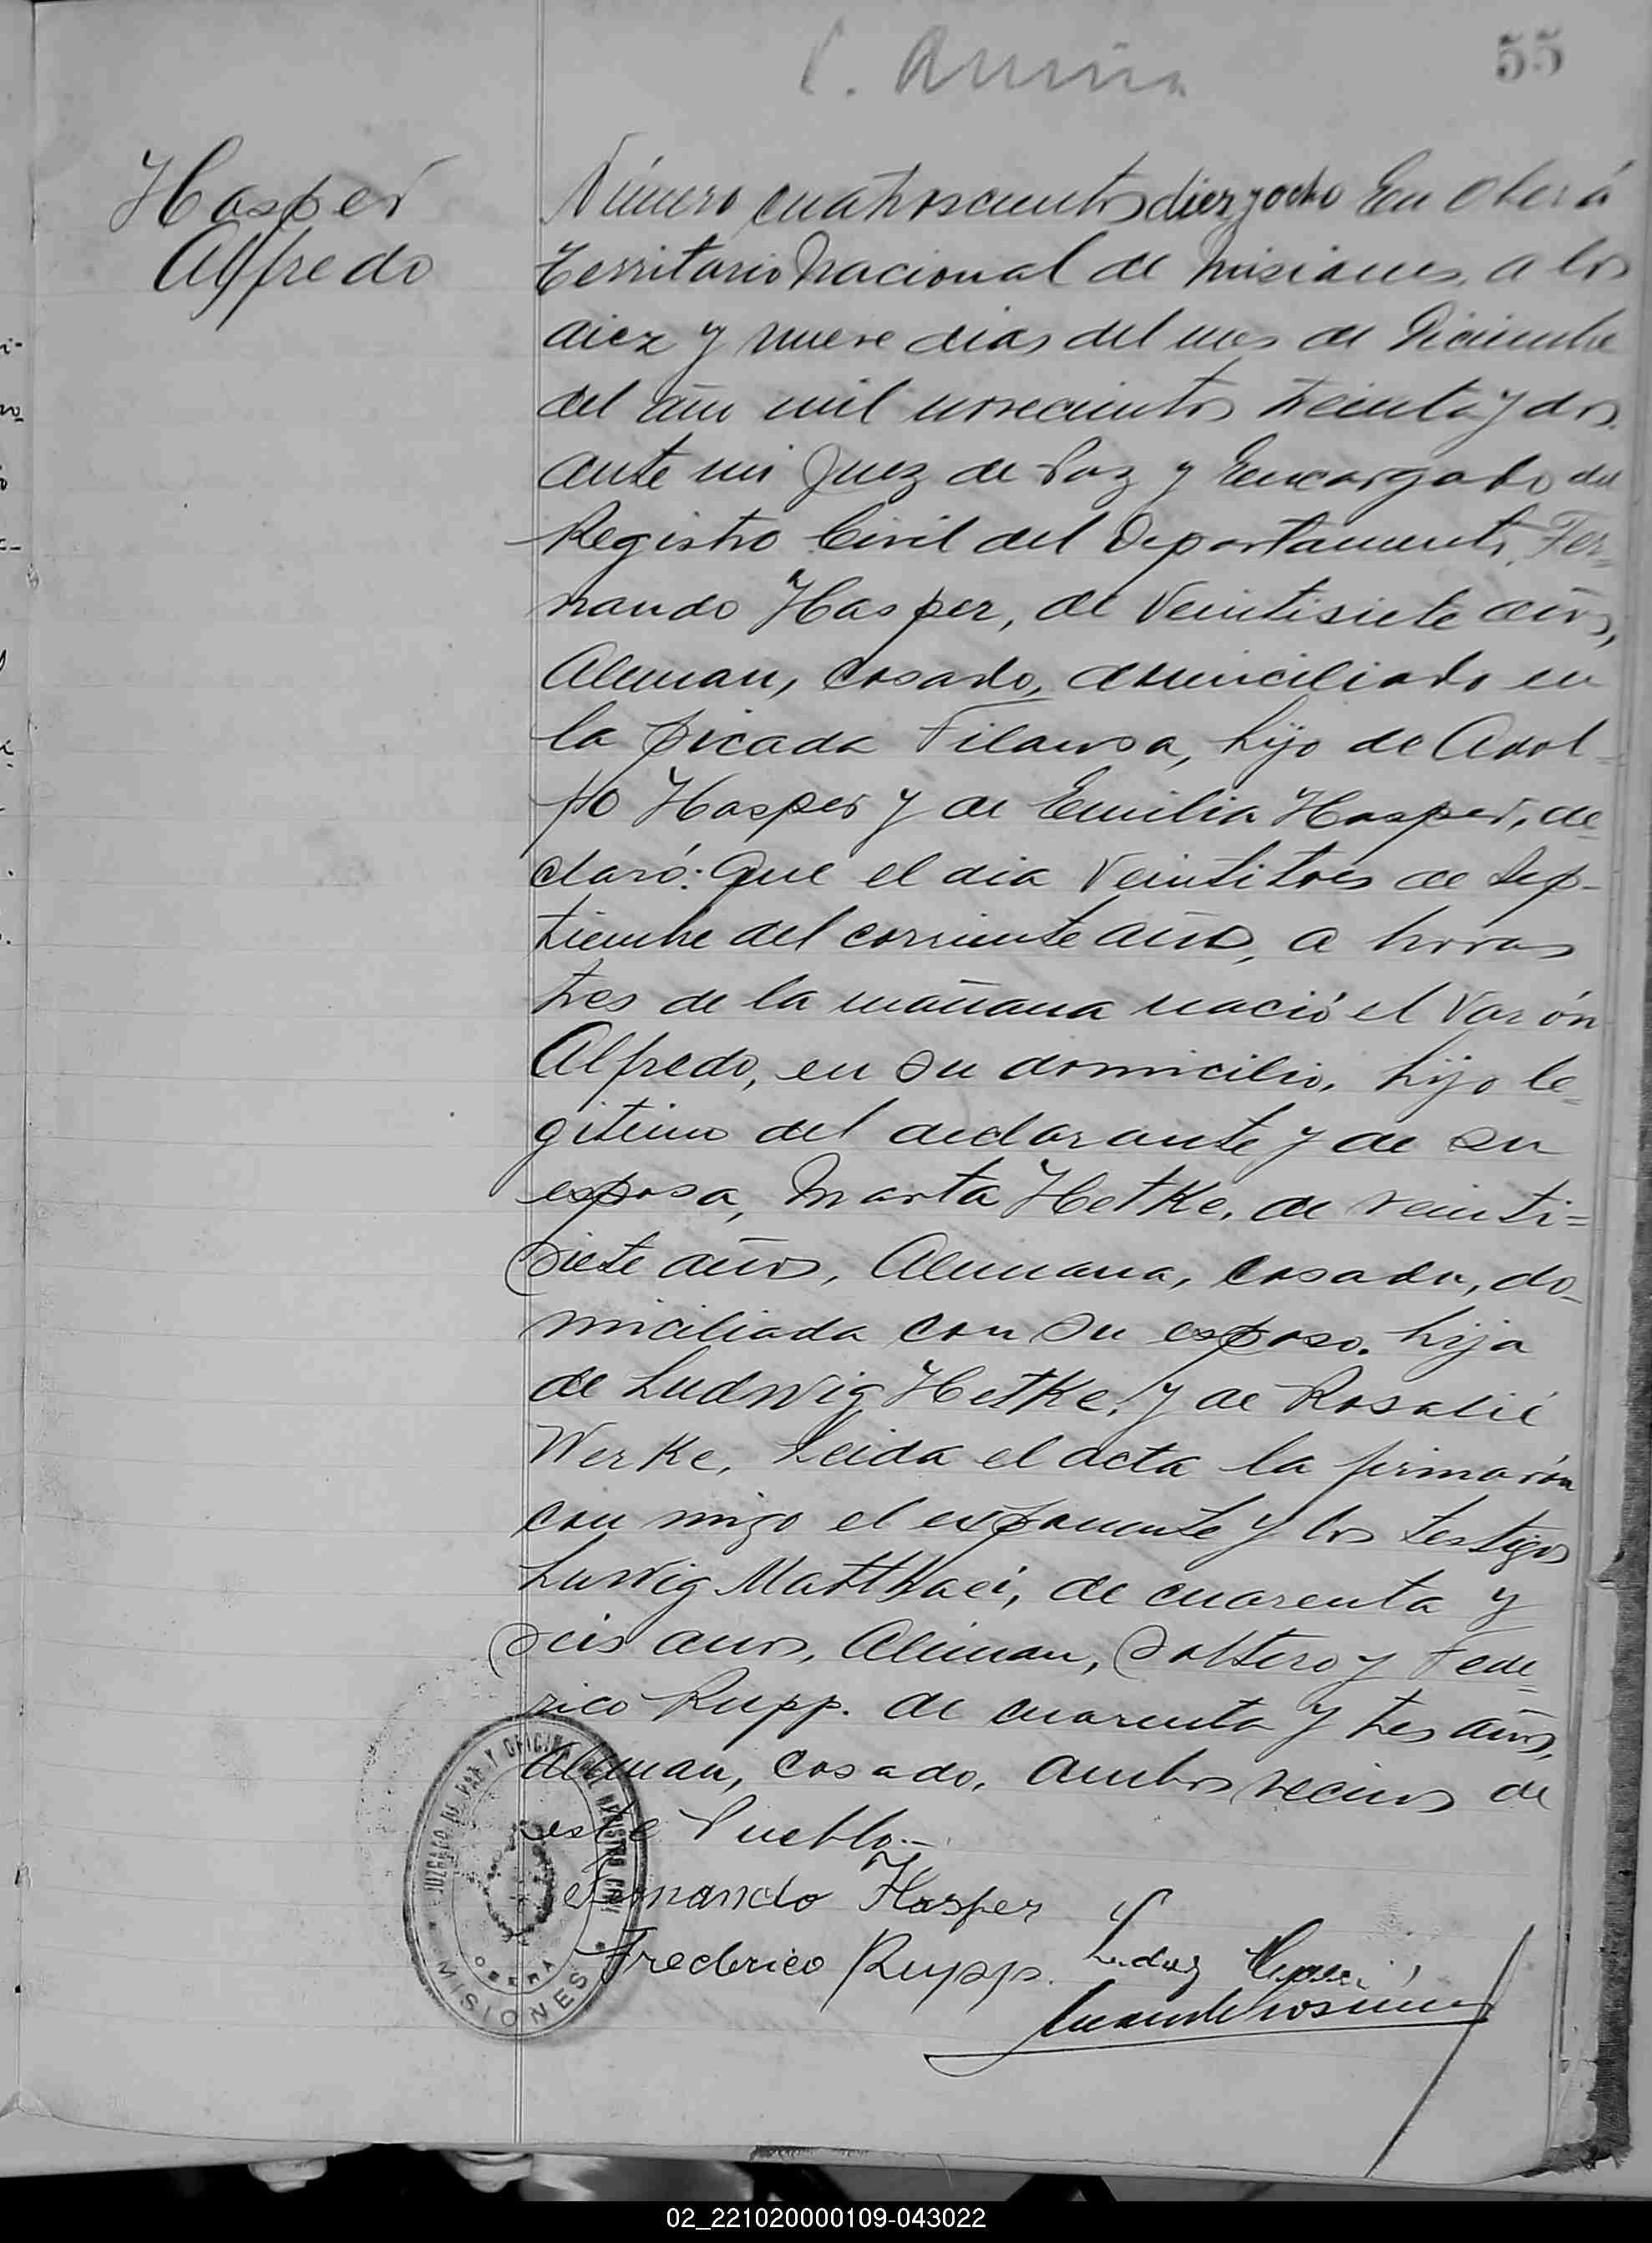 55
Hasper
Alfredo
Número cuatroscientos diez y ocho En Oberá
Territorio Nacional de Misiones, a los
diez y nueve dias del mes de Diciembre
del año mil novecientos treinta y dos.
ante mi Juez de Paz y Encargado del
Registro Civil del Departamento, Fer=
nando Hasper, de veintisiete años,
Aleman, casado, domiciliado en
la picada Filansa, hijo de Adol-
fo Hasper y de Emilia Hasper, de=
claró: Que el dia veintitres de Sep-
tiembre del corriente año, a horas
tres de la mañana nació el varón
Alfredo, en su domicilio, hijo le=
gitimo del declarante y de su
esposa, Marta Hetke, de veinti=
siete años, Alemana, casada, do-
miciliada con su esposo. hija
de Ludwig Hetke, y de Rosalie
Werke, Leida el acta la firmarón
con migo el exponente y los testigos
Luwig Matthaei, de cuarenta y
seis años, Aleman, Soltero y Fede=
rico Rupp. de cuarenta y tres años,
Aleman, casado, ambos vecinos de
este Pueblo.-
Fernando Hasper
Frederico Rupp.
JUZGADO DE PAZ Y OFICINA DEL REGISTRO CIVIL
OBERA
* MISIONES *
02_221020000109-043022